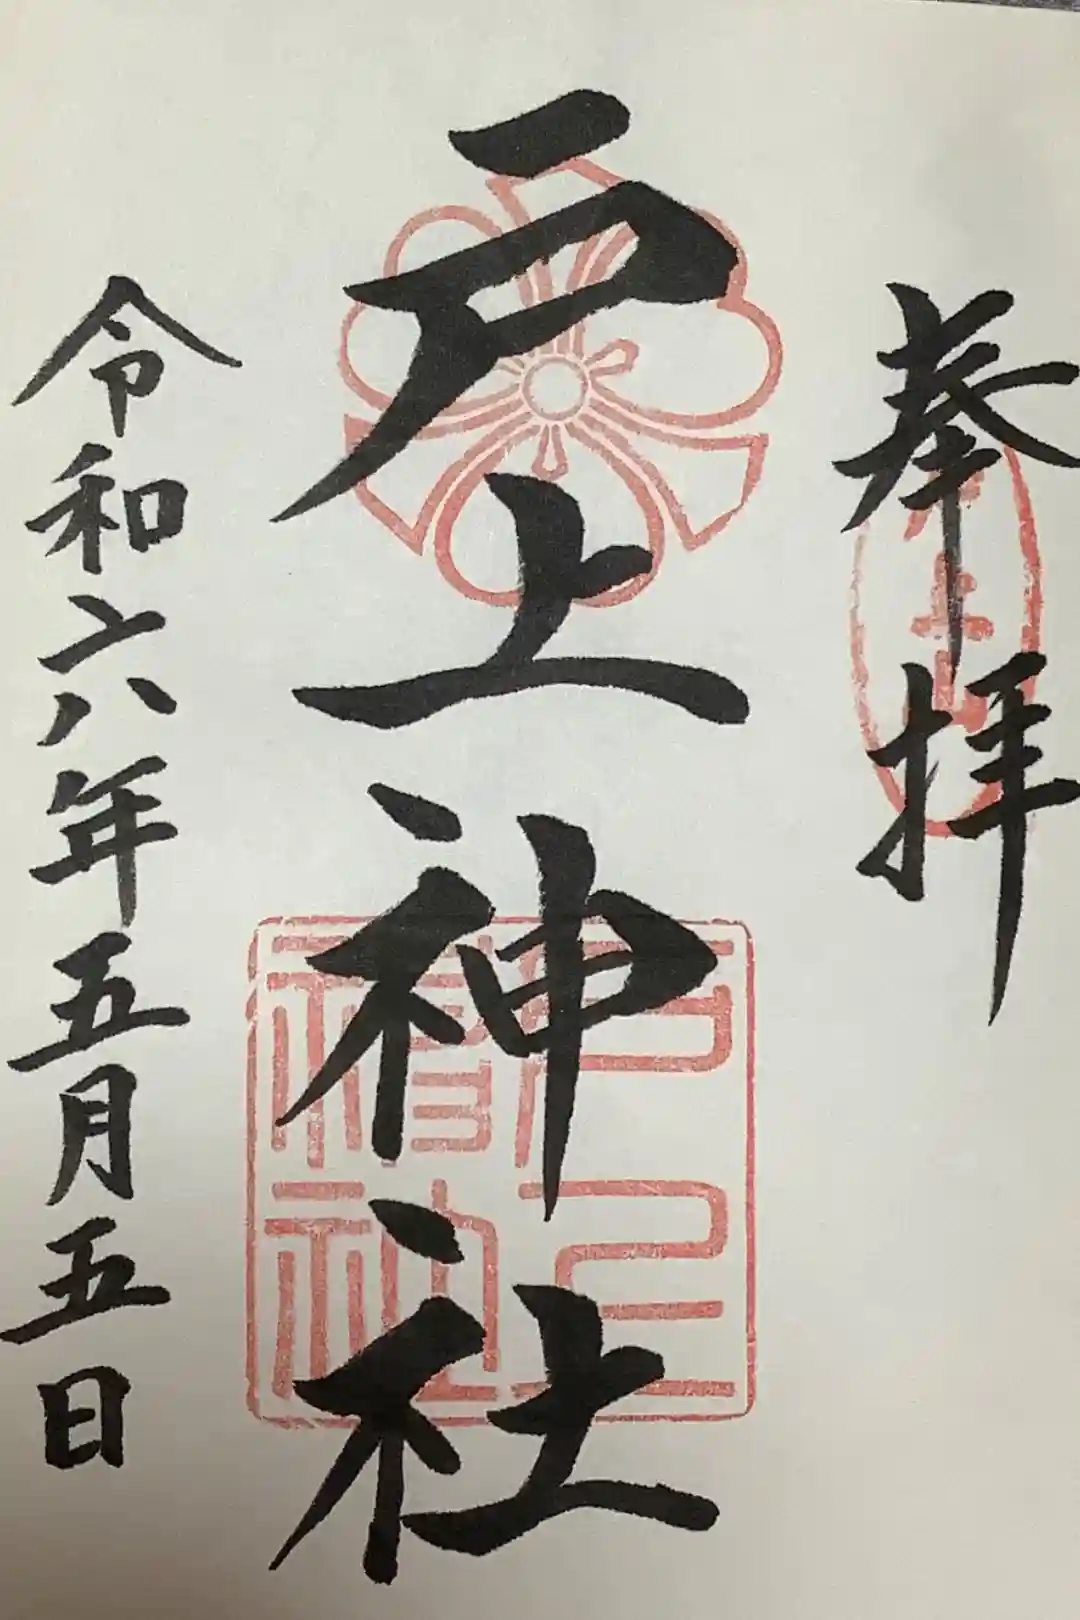 奉拝
戸上神社
令和六年五月五日
戸上神社